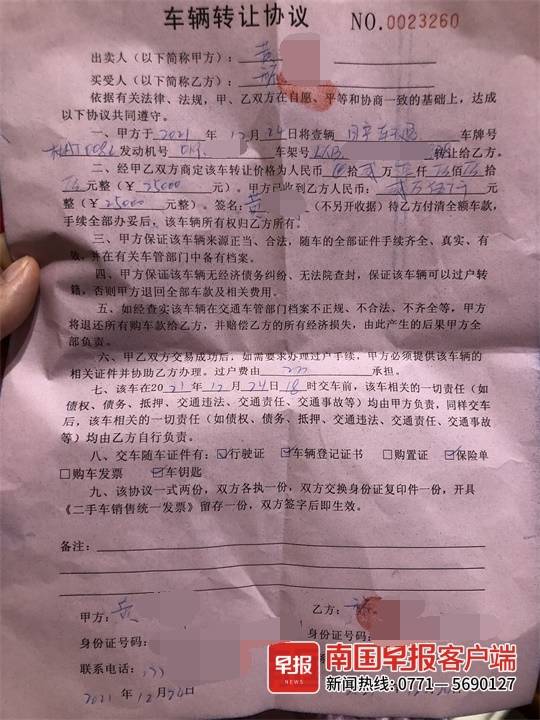 车辆转让协议 NO.0023260
出卖人（以下简称甲方）：黄
买受人（以下简称乙方）：
依据有关法律、法规，甲、乙双方在自愿、平等和协商一致的基础上，达成
以下协议共同遵守。
一、甲方于2021年12月24日将壹辆 车牌号
发动机号 车架号 转让给乙方。
二、经甲乙双方商定该车转让价格为人民币 拾贰万伍仟 佰 拾
元整（￥25000 元）。甲方已收到乙方人民币：贰万伍仟
元整（￥25000 元）。签名：黄 （不另开收据）待乙方付清全额车款，
手续全部办妥后，该车辆所有权归乙方所有。
三、甲方保证该车辆来源正当、合法，随车的全部证件手续齐全、真实、有
效，并在有关车管部门中备有档案。
四、甲方保证该车辆无经济债务纠纷、无法院查封，保证该车辆可以过户转
籍，否则甲方退回全部车款及相关费用。
五、如经查实该车辆在交通车管部门档案不正规、不合法、不齐全等，甲方
将退还所有购车款给乙方，并赔偿乙方的所有经济损失，由此产生的后果甲方全
部负责。
六、甲乙双方交易成功后，如需要求办理过户手续，甲方必须提供该车辆的
相关证件并协助乙方办理。过户费由 承担。
七、该车在2021年12月24日18时交车前，该车相关的一切责任（如
债权、债务、抵押、交通违法、交通责任、交通事故等）均由甲方负责，同样交车
后，该车相关的一切责任（如债权、债务、抵押、交通违法、交通责任、交通事故
等）均由乙方自行负责。
八、交车随车证件有：☑行驶证 ☑车辆登记证书 □购置证 ☑保险单
□购车发票 ☑车钥匙
九、该协议一式两份，双方各执一份，双方交换身份证复印件一份，开具
《二手车销售统一发票》留存一份，双方签字后即生效。
备注：
甲方：黄 乙方：
身份证号码： 身份证号码：
联系电话：
2021年12月24日
早报 NEWS 南国早报客户端
新闻热线：0771—5690127